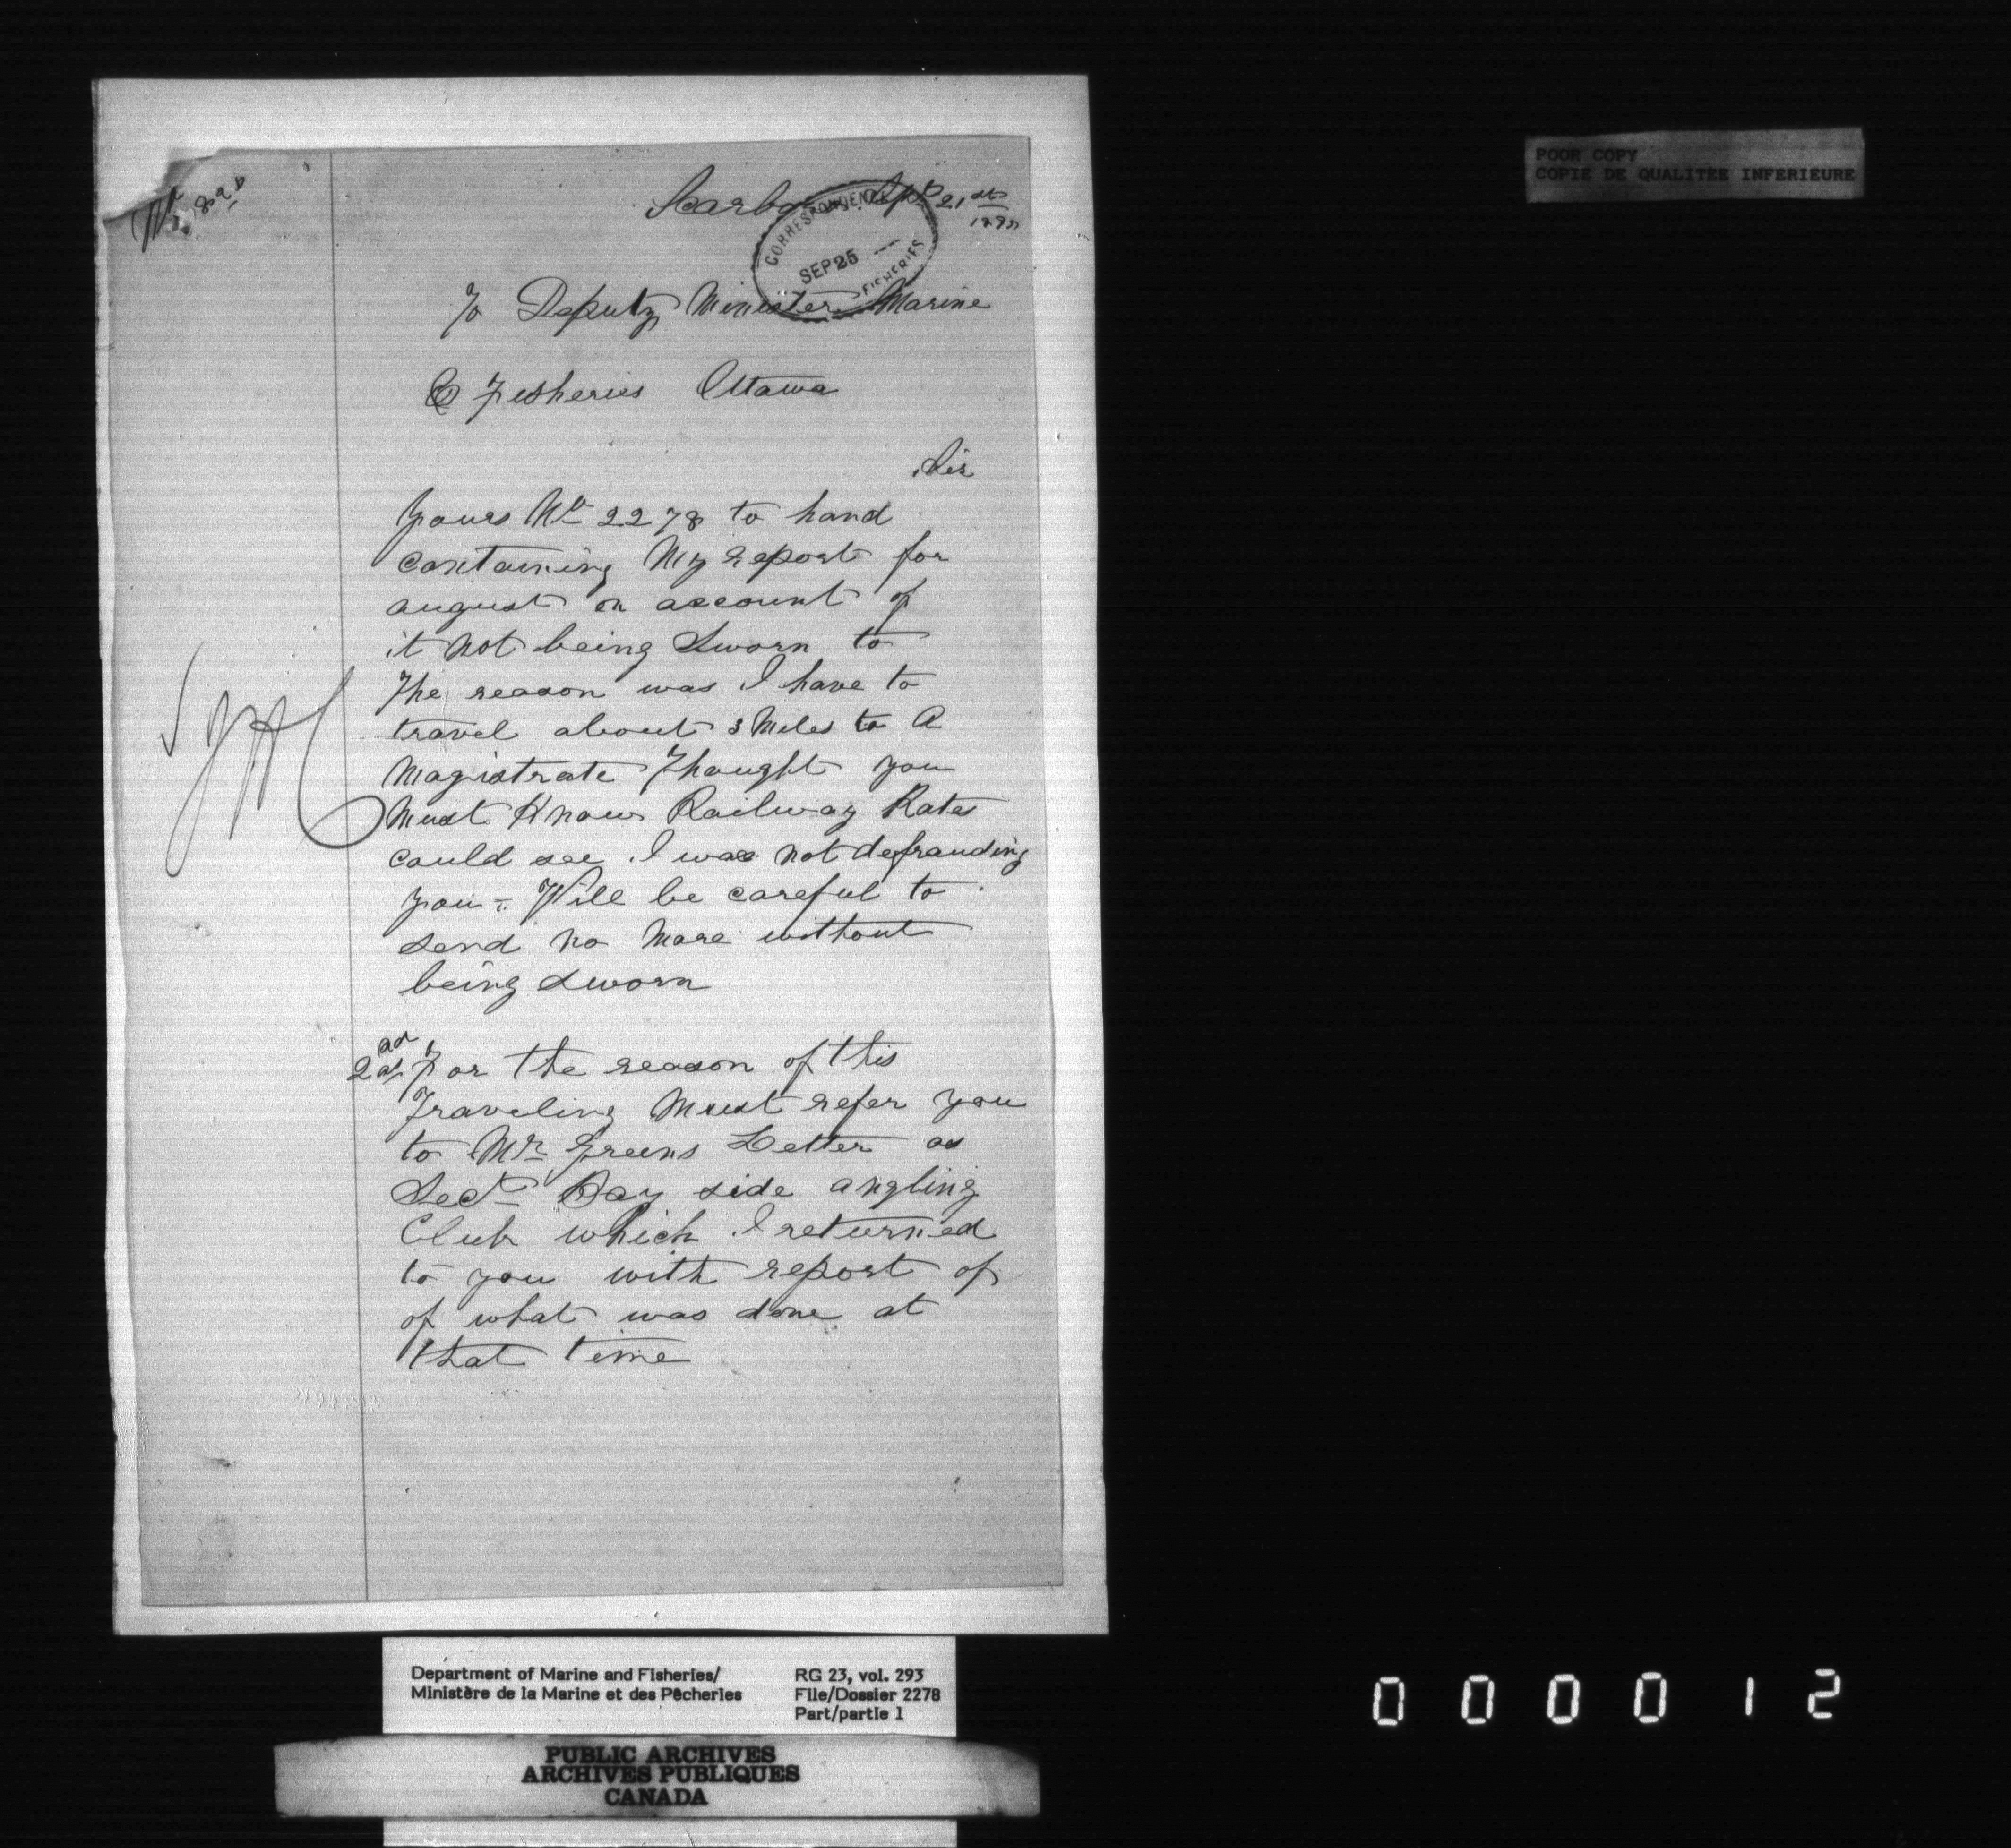 Scarboro Sept 21st
1892
CORRESPONDENCE
SEP 25
FISHERIES
To Deputy Minister Marine
& Fisheries Ottawa
Sir
Yours No 2278 to hand
containing My report for
august on account of
it not being Sworn to
The reason was I have to
travel about 3 Miles to A
Magistrate Thought you
Must Know Railway Rates
could see I was not defrauding
you - Will be careful to
send no More without
being sworn
2nd For the reason of this
Traveling Must refer you
to Mr Greens Letter as
Secty Bay side angling
Club which I returned
to you with report of
of what was done at
that time
POOR COPY
COPIE DE QUALITEE INFERIEURE
Department of Marine and Fisheries/
Ministère de la Marine et des Pêcheries
RG 23, vol. 293
File/Dossier 2278
Part/partie 1
PUBLIC ARCHIVES
ARCHIVES PUBLIQUES
CANADA
000012